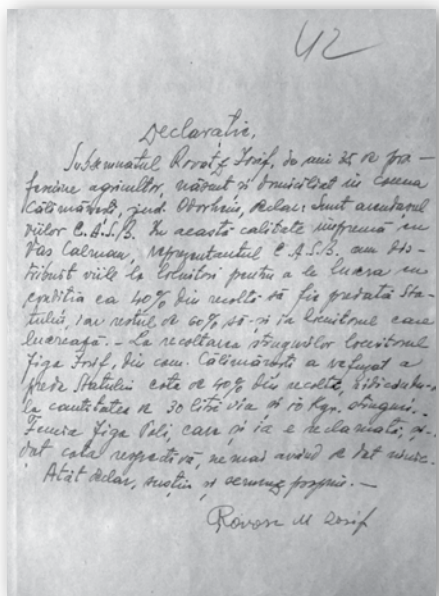 42
Declarație,
Subsemnatul Iosif, de ani 35 de pro-
fesiune agricultor, născut și domiciliat în comuna
Călimănești, jud. Odorhein, declar: Sunt arendașul
viilor C.A.S.B. În această calitate împreună cu
Vas Calman, reprezentantul C.A.S.B. am dis-
tribuit viile la locuitori pentru a le lucra cu
condiția ca 40% din recolta să fie predată Sta-
tului, iar restul de 60% să-și ia locuitorul care
lucrează. - La recoltarea strugurilor locuitorul
Figa Iosif, din com. Călimănești a refuzat a
preda Statului cota de 40% din recolta, ridicându-
la cantitatea de 30 litri vin și 10 Kgr. struguri. -
Femeia Figa Poli, care și ea e reclamată, și-a
dat cota respectivă, ne mai având de dat nimic.
Atât declar, susțin și semnez propriu. -